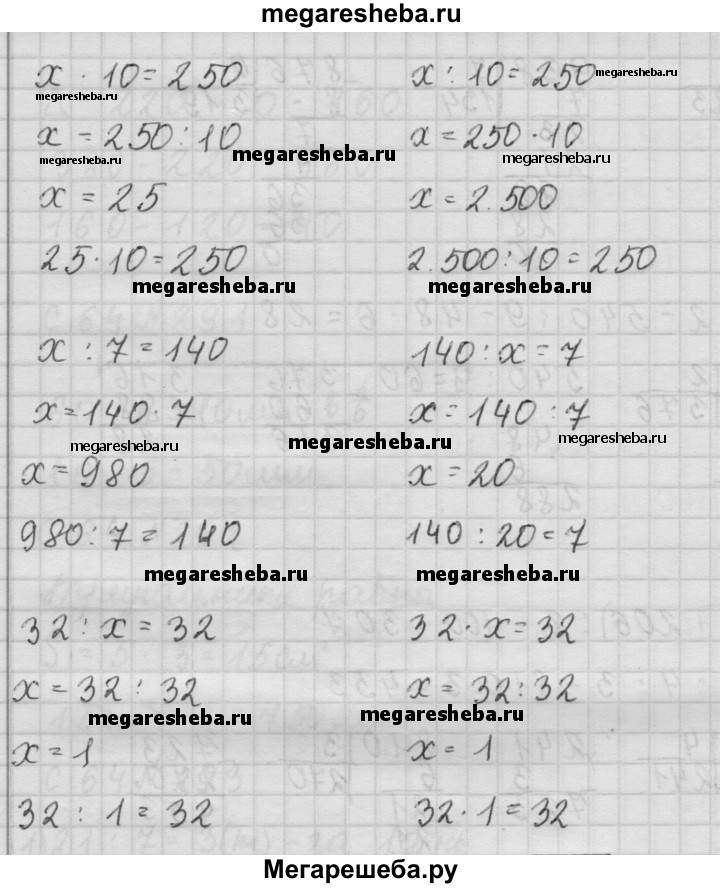 megaresheba.ru
x · 10 = 250
megaresheba.ru
x = 250 : 10
megaresheba.ru
megaresheba.ru
x = 25
25 · 10 = 250
megaresheba.ru
x : 10 = 250
megaresheba.ru
x = 250 · 10
megaresheba.ru
x = 2.500
2.500 : 10 = 250
megaresheba.ru
x : 7 = 140
x = 140 · 7
megaresheba.ru
megaresheba.ru
x = 980
980 : 7 = 140
megaresheba.ru
140 : x = 7
x = 140 : 7
megaresheba.ru
x = 20
140 : 20 = 7
megaresheba.ru
32 : x = 32
x = 32 : 32
megaresheba.ru
x = 1
32 : 1 = 32
32 · x = 32
x = 32 : 32
megaresheba.ru
x = 1
32 · 1 = 32
Мегарешеба.ру